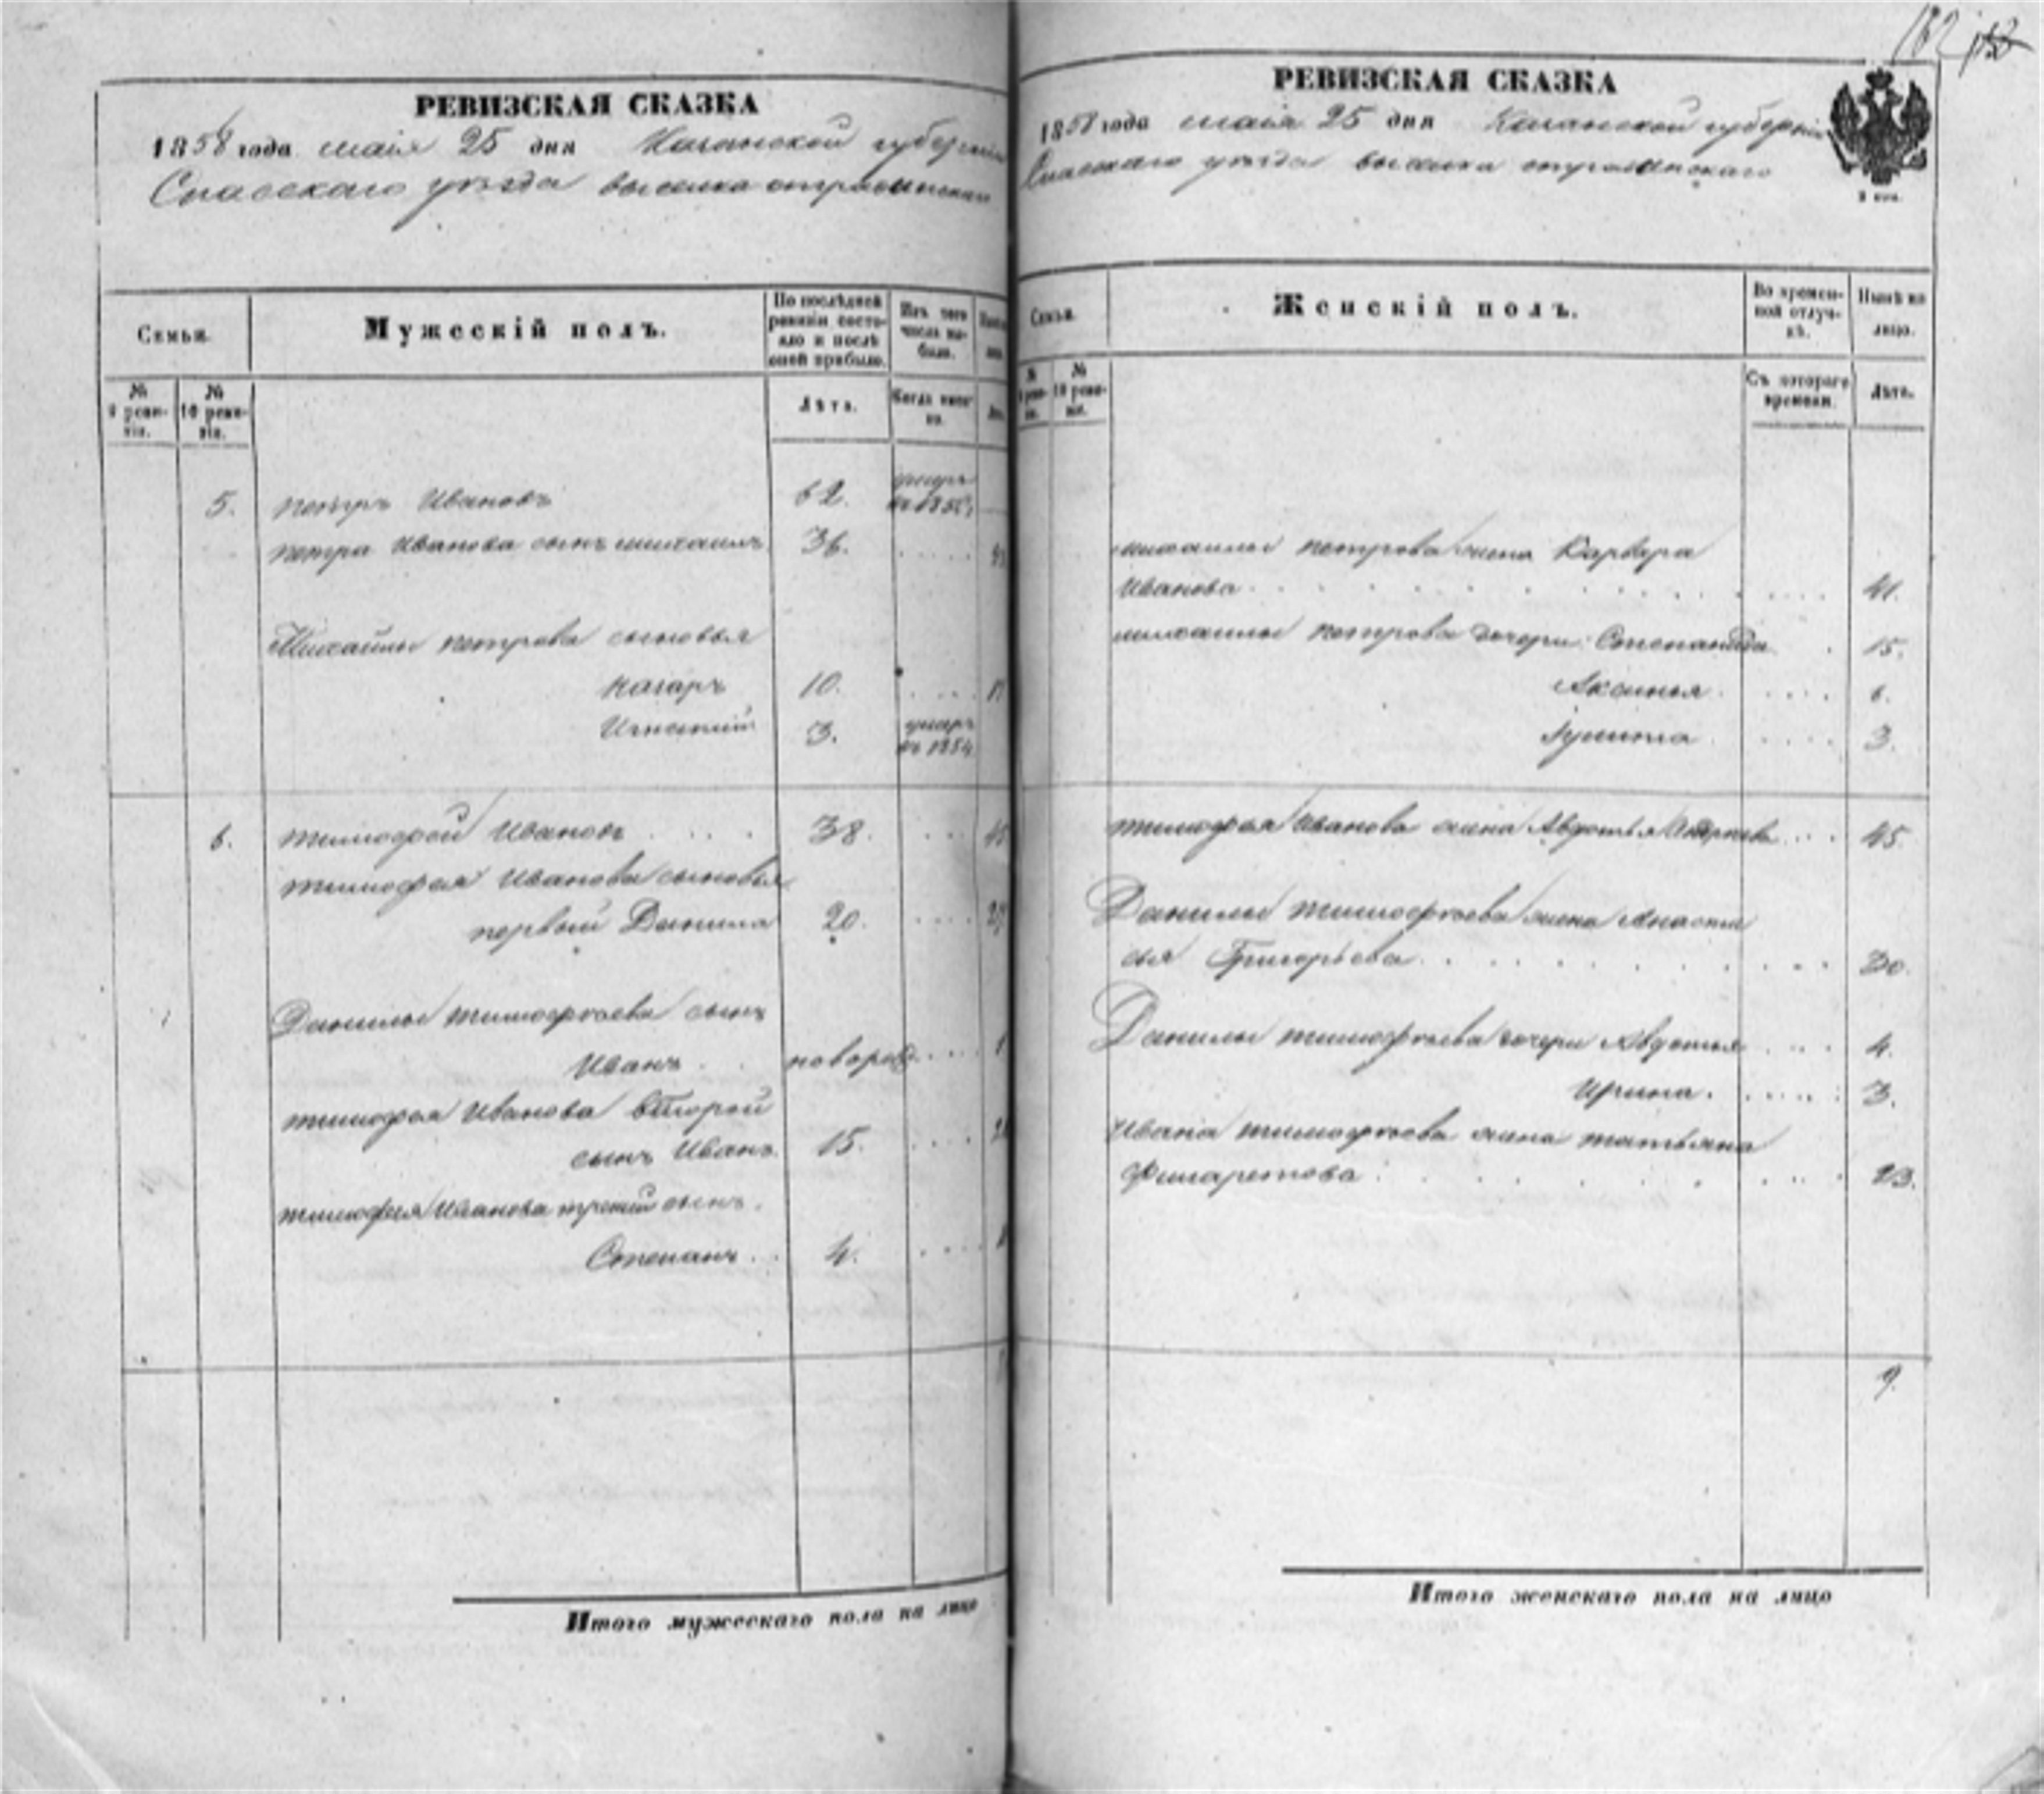 РЕВИЗСКАЯ СКАЗКА
1858 года маія 25 дня Казанской губерніи
Спасскаго уѣзда выселка
Семьи.
Мужескій полъ.
По послѣдней ревизіи состояло и послѣ оной прибыло.
Изъ того числа выбыло.
№ 9 ревизіи.
№ 10 ревизіи.
Лѣта.
Когда именно.
5. петръ Ивановъ 62. умеръ
петра Иванова сынъ михаилъ 36.
Михайлы петрова сыновья
назаръ 10.
Игнатий 3. умеръ въ 1854
6. тимофей Ивановъ 38.
тимофея Иванова сыновья
первый Данила 20. 27
Данилы тимофѣева сынъ
Иванъ новорож.
тимофея Иванова второй
сынъ Иванъ 15.
тимофея Иванова третий сынъ
Степанъ 4.
Итого мужескаго пола на лицо
РЕВИЗСКАЯ СКАЗКА
1858 года маія 25 дня Казанской губерніи
Спасскаго уѣзда выселка
Семьи.
Женскій полъ.
Во временной отлучкѣ.
Нынѣ на лицо.
№ 9 ревизіи.
№ 10 ревизіи.
Съ котораго времени.
Лѣта.
михаилы петрова жена Варвара
Иванова 41.
михаилы петрова дочери Степанида 15.
Аксинья 6.
3.
тимофея Иванова жена Авдотья Андреева 45.
Данилы тимофѣева жена Анаста
сья Григорьева 30.
Данилы тимофѣева дочери Авдотья 4.
Ирина 3.
Ивана тимофѣева жена татьяна
Филаретова 23.
9.
Итого женскаго пола на лицо